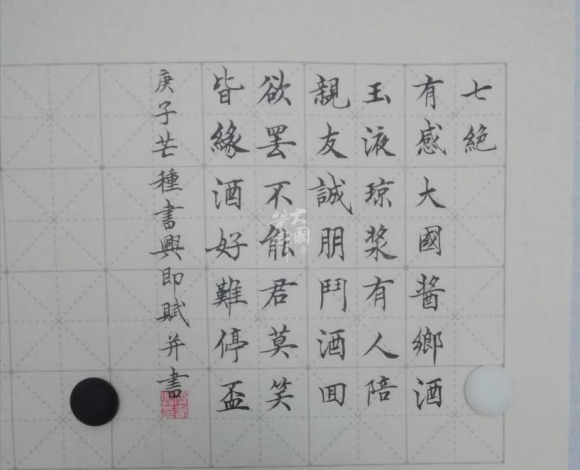 七絕
有感大國醬鄉酒
玉液琼浆有人陪
親友誠朋鬥酒回
欲罢不能君莫笑
皆緣酒好難停盃
庚子芒種書興即賦并書
大國